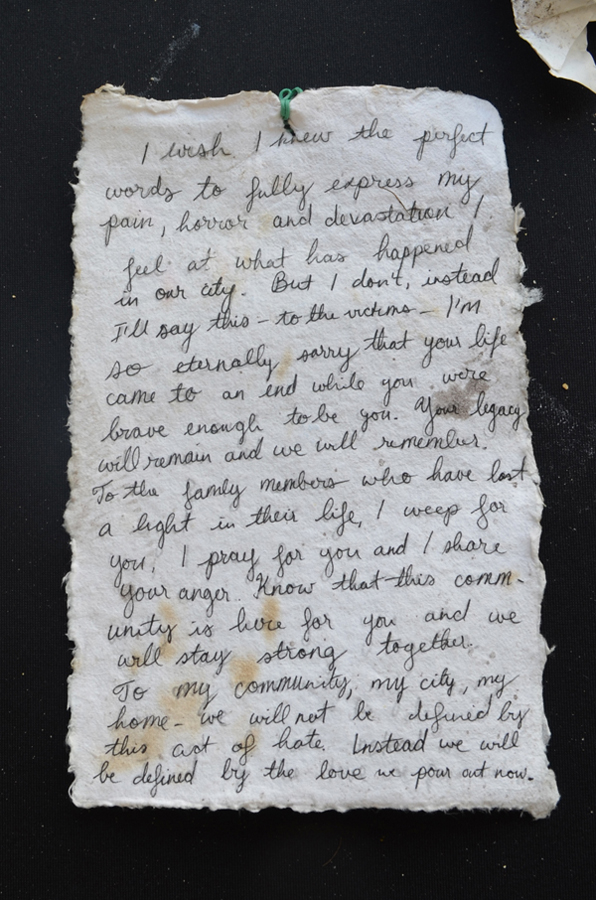 I wish I knew the perfect
words to fully express my
pain, horror and devastation I
feel at what has happened
in our city. But I don't, instead
I'll say this - to the victims - I'm
so eternally sorry that your life
came to an end while you were
brave enough to be you. Your legacy
will remain and we will remember.
To the family members who have lost
a light in their life, I weep for
you, I pray for you and I share
your anger. Know that this comm-
unity is here for you and we
will stay strong together.
To my community, my city, my
home - we will not be defined by
this act of hate. Instead we will
be defined by the love we pour out now.